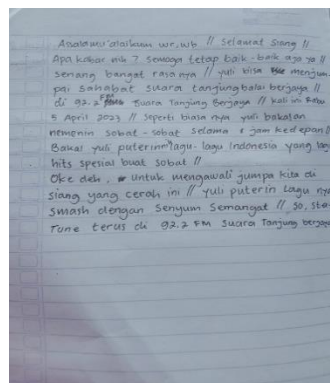 Assalamu'alaikum wr.wb // Selamat Siang //
Apa kabar nih ? semoga tetap baik - baik aja ya //
senang banget rasanya // yuli bisa menjum
pai sahabat suara tanjungbalai berjaya //
di 92.2 FM Suara Tanjung Berjaya // kali ini Rabu
5 April 2023 // seperti biasa nya yuli bakalan
nemenin sobat - sobat selama 1 jam kedepan //
Bakal yuli puterin lagu - lagu Indonesia yang lag
hits spesial buat sobat //
Oke deh, untuk mengawali jumpa kita di
siang yang cerah ini // yuli puterin lagu nya
smash dengan Senyum Semangat // So, sta
Tune terus di 92.2 FM Suara Tanjung berjaya